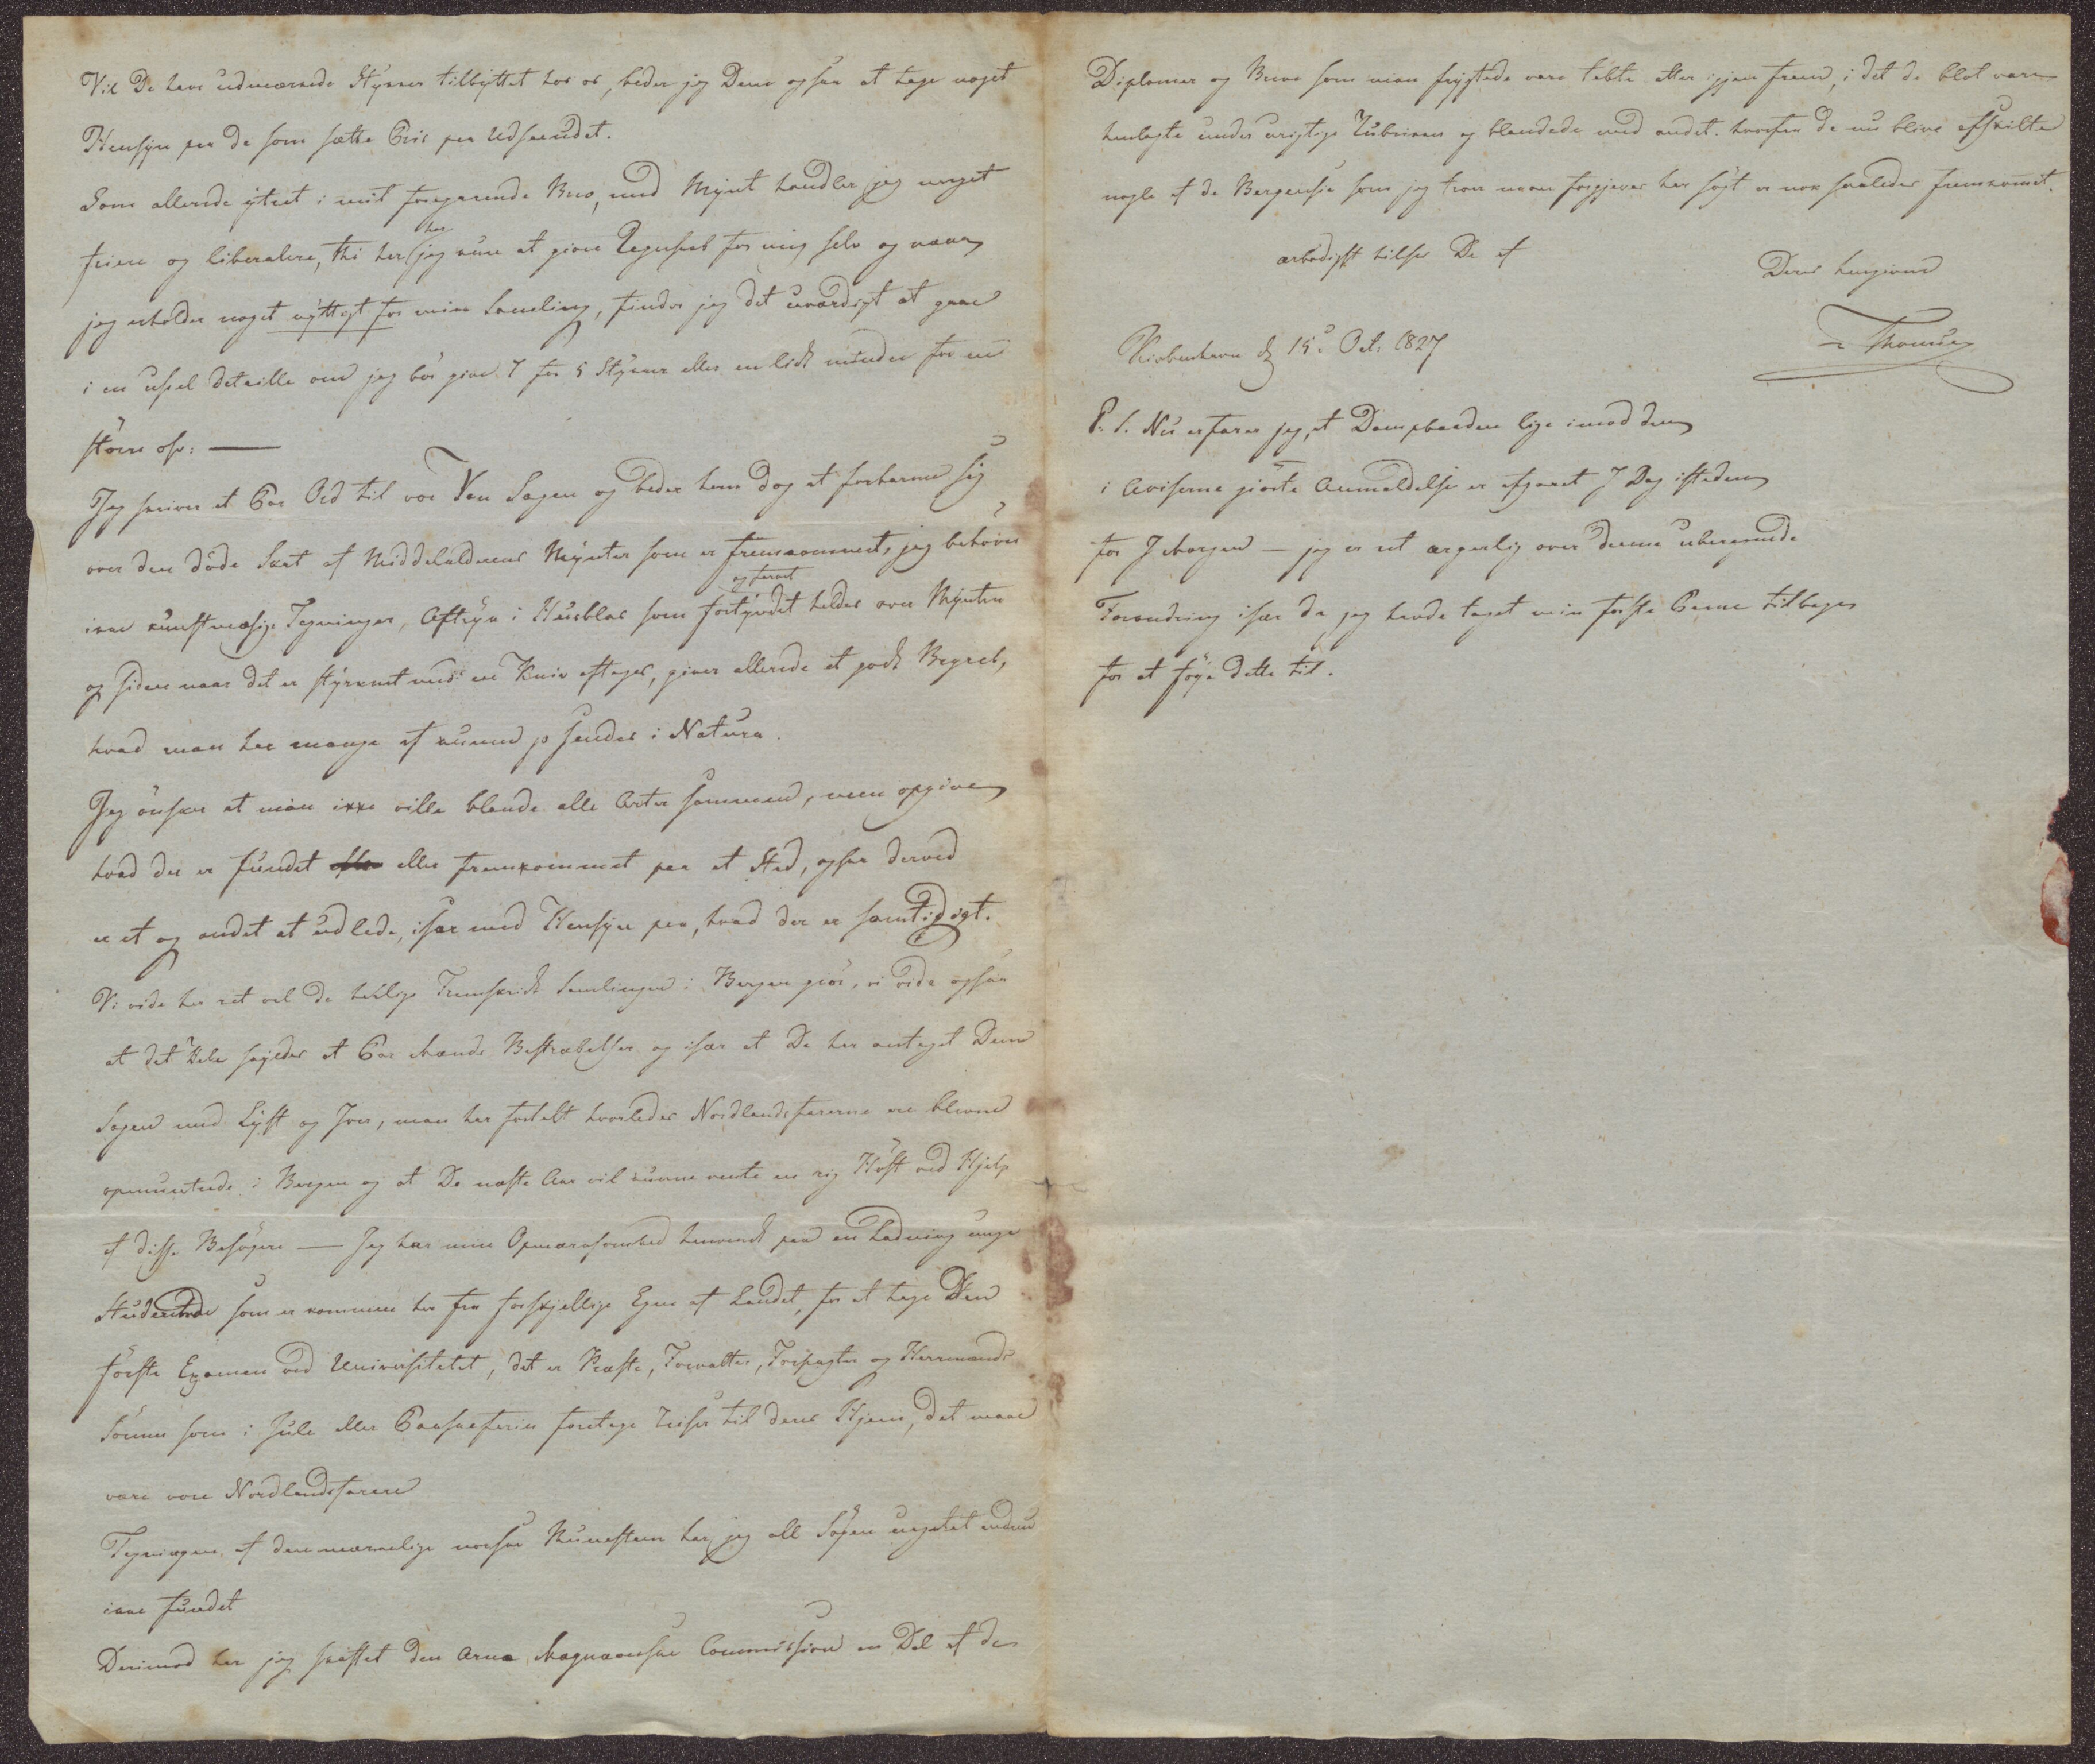 Vil De have udmærkede Stykker tilbyttet hos os, beder jeg Dem ogsaa at tage noget
Hensyn paa de som sætte Priis paa Udseendet.
Som allerede ytret i mit foregaaende Brev, med Mynt handler jeg meget
friere og liberalere, thi her har jeg kun at giøre Regnskab for mig selv og naar
jeg erholder noget nyttigt for min Samling, finder jeg det uværdigt at gaae
i en ussel detaille om jeg bør give 7 for 5 Stykker eller en lidt mindre for en
større osv: —
Jeg skriver et Par Ord til vor Ven Sagen og beder ham dog at forbarme sig
over den døde Skat af Middelalderens Mynter som er fremkommet, jeg behøver
ikke kunstmæsige Tegninger, Aftryk i Huusblas som fortyndet og farvet heldes over Mynten
og siden naar det er styrknet med en Kniv aftages, giver allerede et godt Begreb,
hvad man har mange af kunne jo sendes i Natura.
Jeg ønsker at man ikke ville blande alle Arter sammen, men opgive
hvad der er fundet eller fremkommet paa et Sted, ogsaa derved
er et og andet at udlede, især med Hensyn paa, hvad der er samtidigt.
Vi vide her ret vel de heldige Fremskridt Samlingen i Bergen giør, vi vide ogsaa
at det hele skyldes et Par Mænds Bestræbelser og især at De har antaget Dem
Sagen med Lyst og Iver, man har fortalt hvorledes Nordlandsfarerne ere blevne
opmuntrede i Bergen og at De næste Aar vil kunne vente en rig Høst ved Hjelp
af disse Besøgere — Jeg har min Opmærksomhed henvendt paa en Ladning unge
Studentere som er kommen her fra forskjellige Egne af Landet, for at tage Den
første Examen ved Universitetet, det er Præste, Forvalter, Forpagter og Herremands
Sønner som i Jule eller Paaskeferien foretage Reiser til deres Hjem, det maae
være vore Nordlandsfarere
Tegningen af den mærkelige norske Runesteen har jeg all Søgen uagtet endnu
ikke fundet
Derimod har jeg skaffet den Arna Magnæanske Commission en Del af de
Diplomer og Breve som man frygtede vare tabte atter igjen frem, i det de blot vare
henlagte under urigtige Rubrikker og blandede med andet. hvorfra de nu blive afskilte
nogle af de Bergenske som jeg troer man forgjeves har søgt er nok saaledes fremkommet.
ærbødigst hilses De af
Deres hengivne
Thomsen
Kiøbenhavn d 15. Oct: 1827
P. S. Nu erfarer jeg, at Dampbaaden lige imod den
i Aviserne giorte Anmeldelse er afgaaet I Dag isteden
for I Morgen — jeg er ret ærgerlig over denne ubehagende
Forandring især da jeg havde taget min første Pakke tilbage
for at føye dette til.